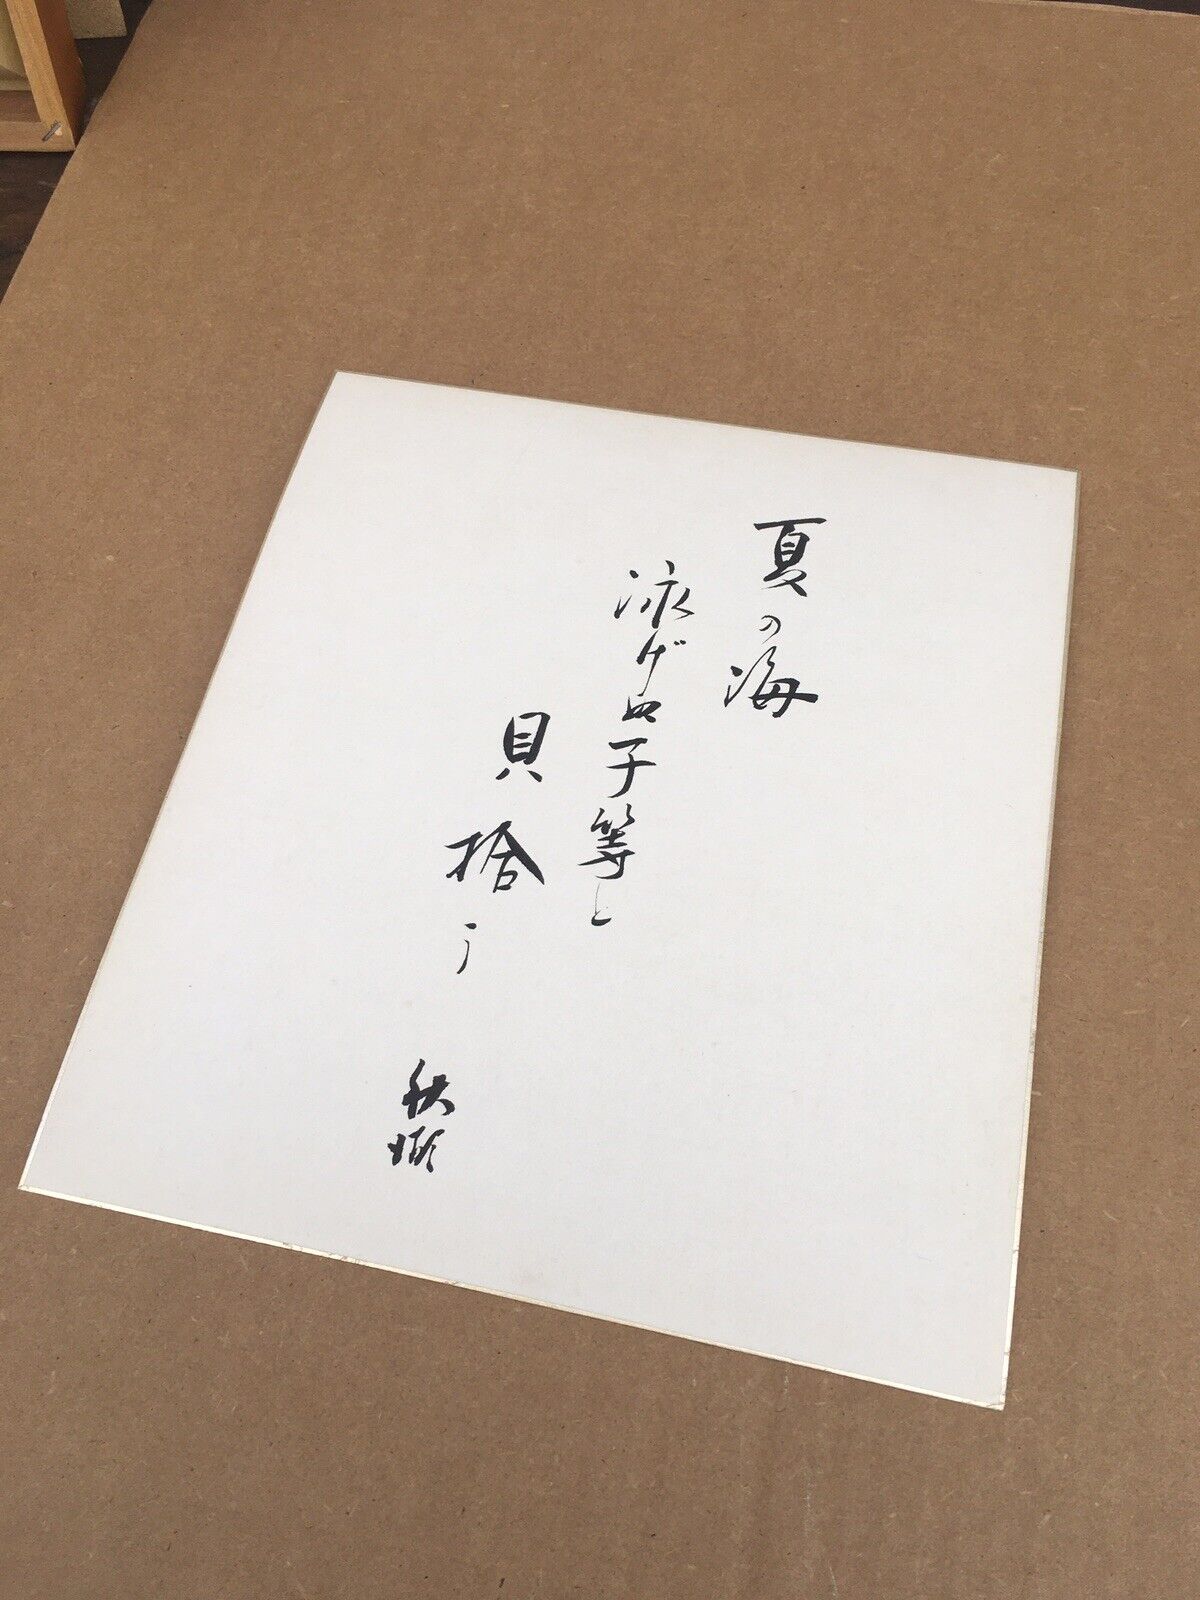 夏の海
泳げぬ子等と
貝拾う
秋